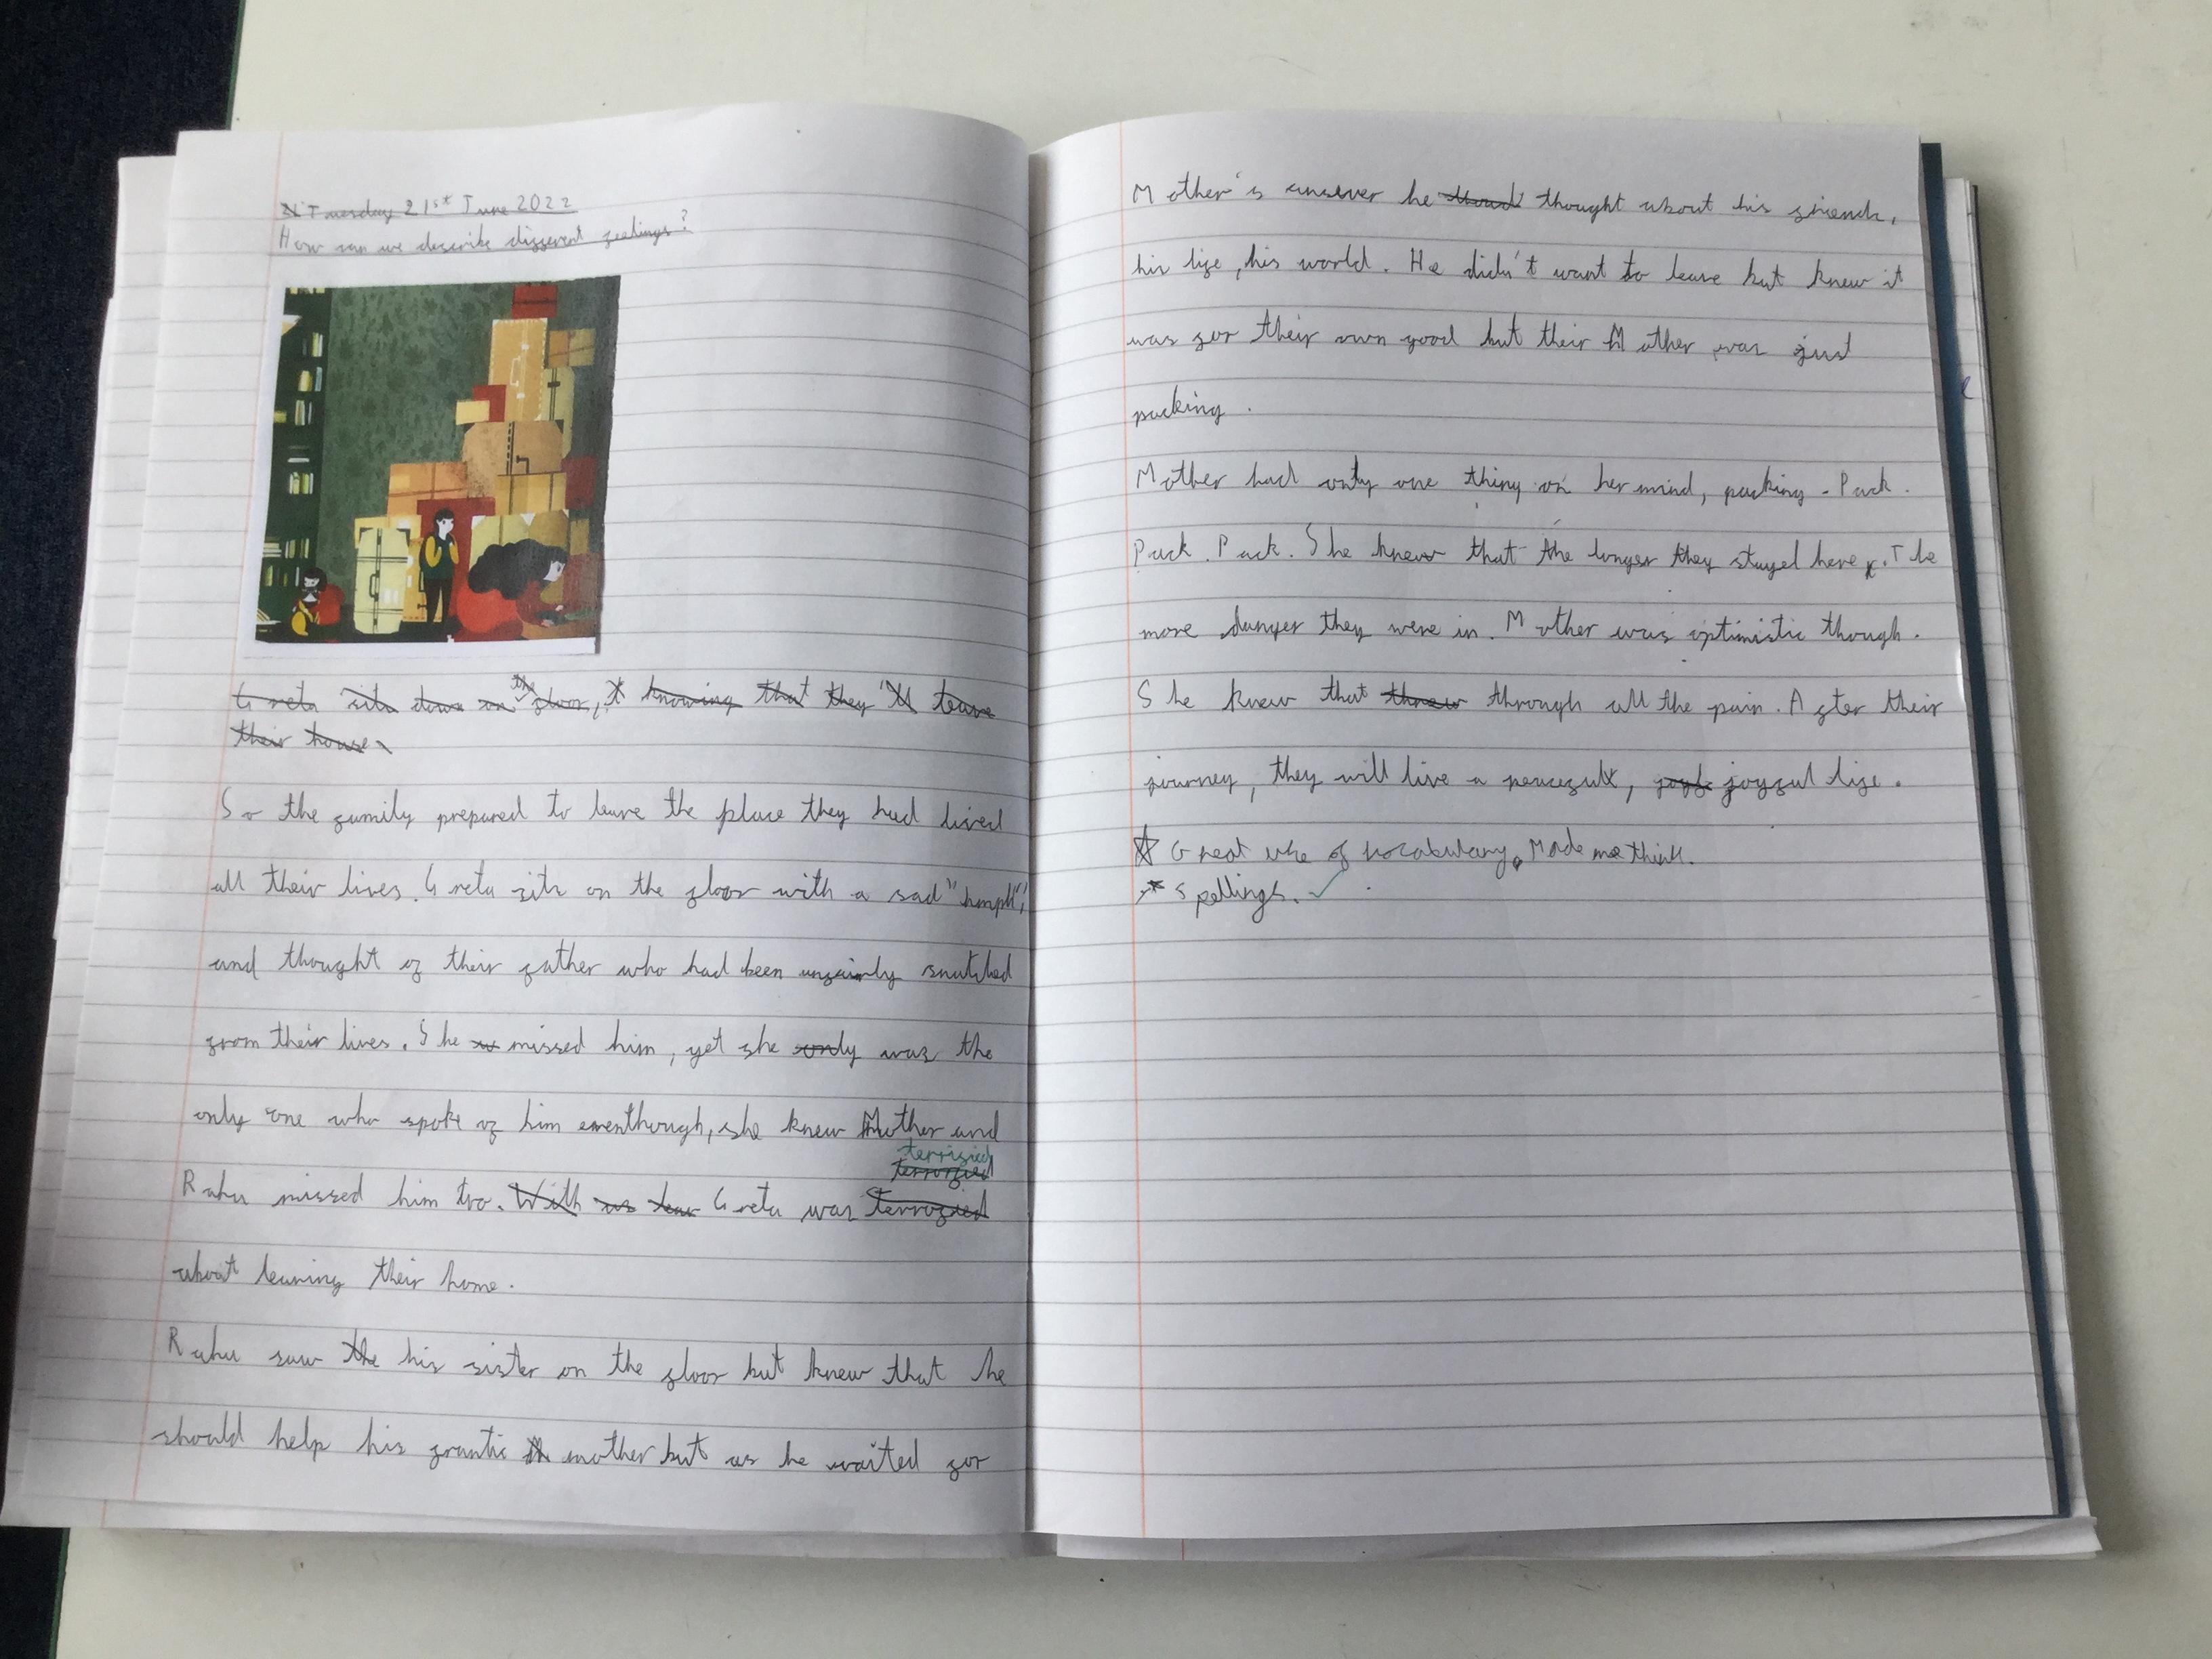 Tuesday 21st June 2022
How can we describe different feelings?
Greta sits down on the floor, knowing that they'll leave
their house.
So the family prepared to leave the place they had lived
all their lives. Greta sits on the floor with a sad "hmph",
and thought of their father who had been unfairly snatched
from their lives. She missed him, yet she only was the
only one who spoke of him eventhough, she knew Mother and
terrified
Raha missed him too. With as Greta was terrozied
about leaving their home.
Raha saw the his sister on the floor but knew that he
should help his frantic mother but as he waited for
Mother's answer he thought about his friends,
his life, his world. He didn't want to leave but knew it
was for their own good but their Mother was just
packing.
Mother had only one thing on her mind, packing - Pack.
Pack. Pack. She knew that the longer they stayed here. The
more danger they were in. Mother was optimistic though.
She knew that threw through all the pain. After their
journey, they will live a peaceful, joyful life.
Great use of vocabulary. Made me think.
Spellings.